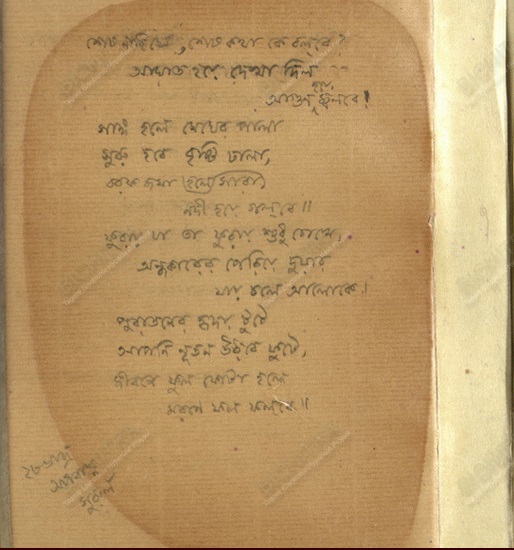 শেষ নাহি যে, শেষ কথা কে বলবে?
আঘাত হয়ে দেখা দিল
হয়ে
আগুন জ্বলবে!
সাঙ্গ হলে মেঘের পালা
সুরু হবে বৃষ্টি ঢালা,
বরফ জমা (হলে সারা)
নদী হয়ে গলবে॥
ফুরায় যা তা ফুরায় শুধু চোখে,
অন্ধকারের পেরিয়ে দুয়ার
যায় চলে আলোকে।
পুরাতনের হৃদয় টুটে
আপনি নূতন উঠবে ফুটে,
জীবনে ফুল ফোটা হলে
মরণে ফল ফলবে॥
২৮ ভাদ্র
অপরাহ্ণ
সুরুল